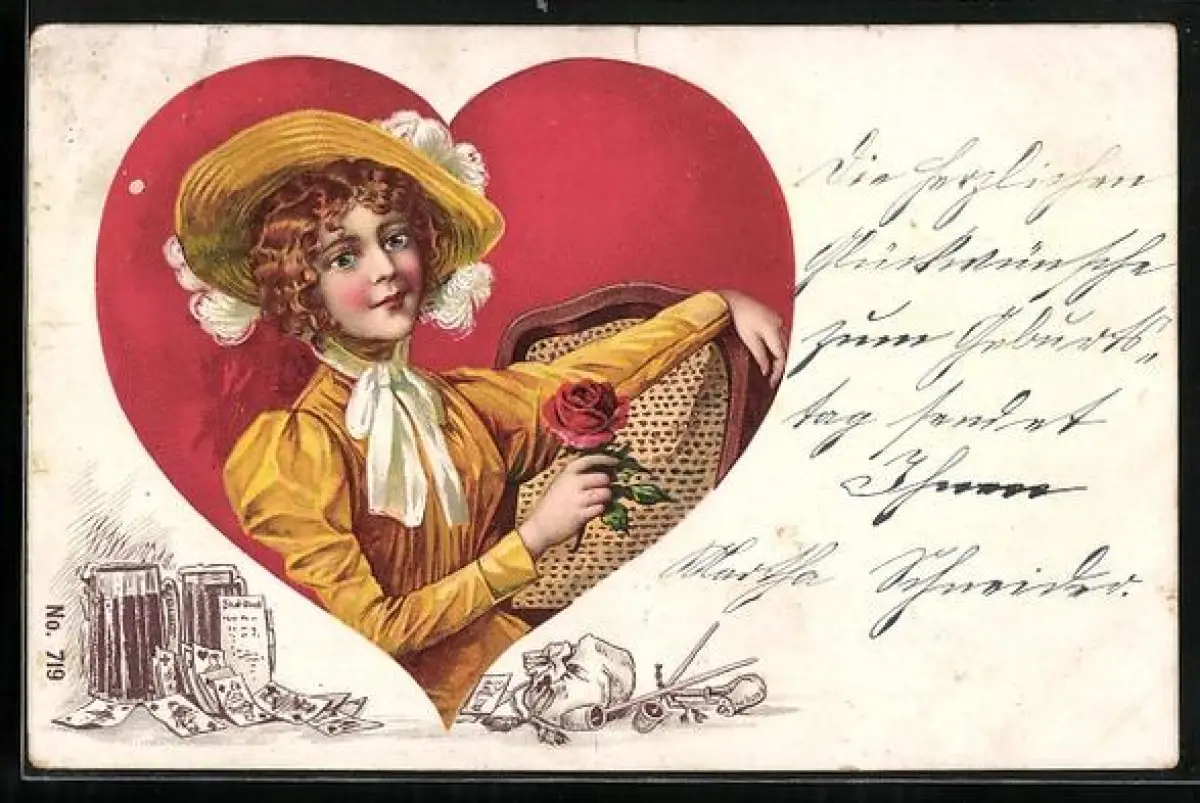 Die herzlichen
Glückwünsche
zum Geburts„
tag sendet
Ihnen
Martha Schneider.
No. 719